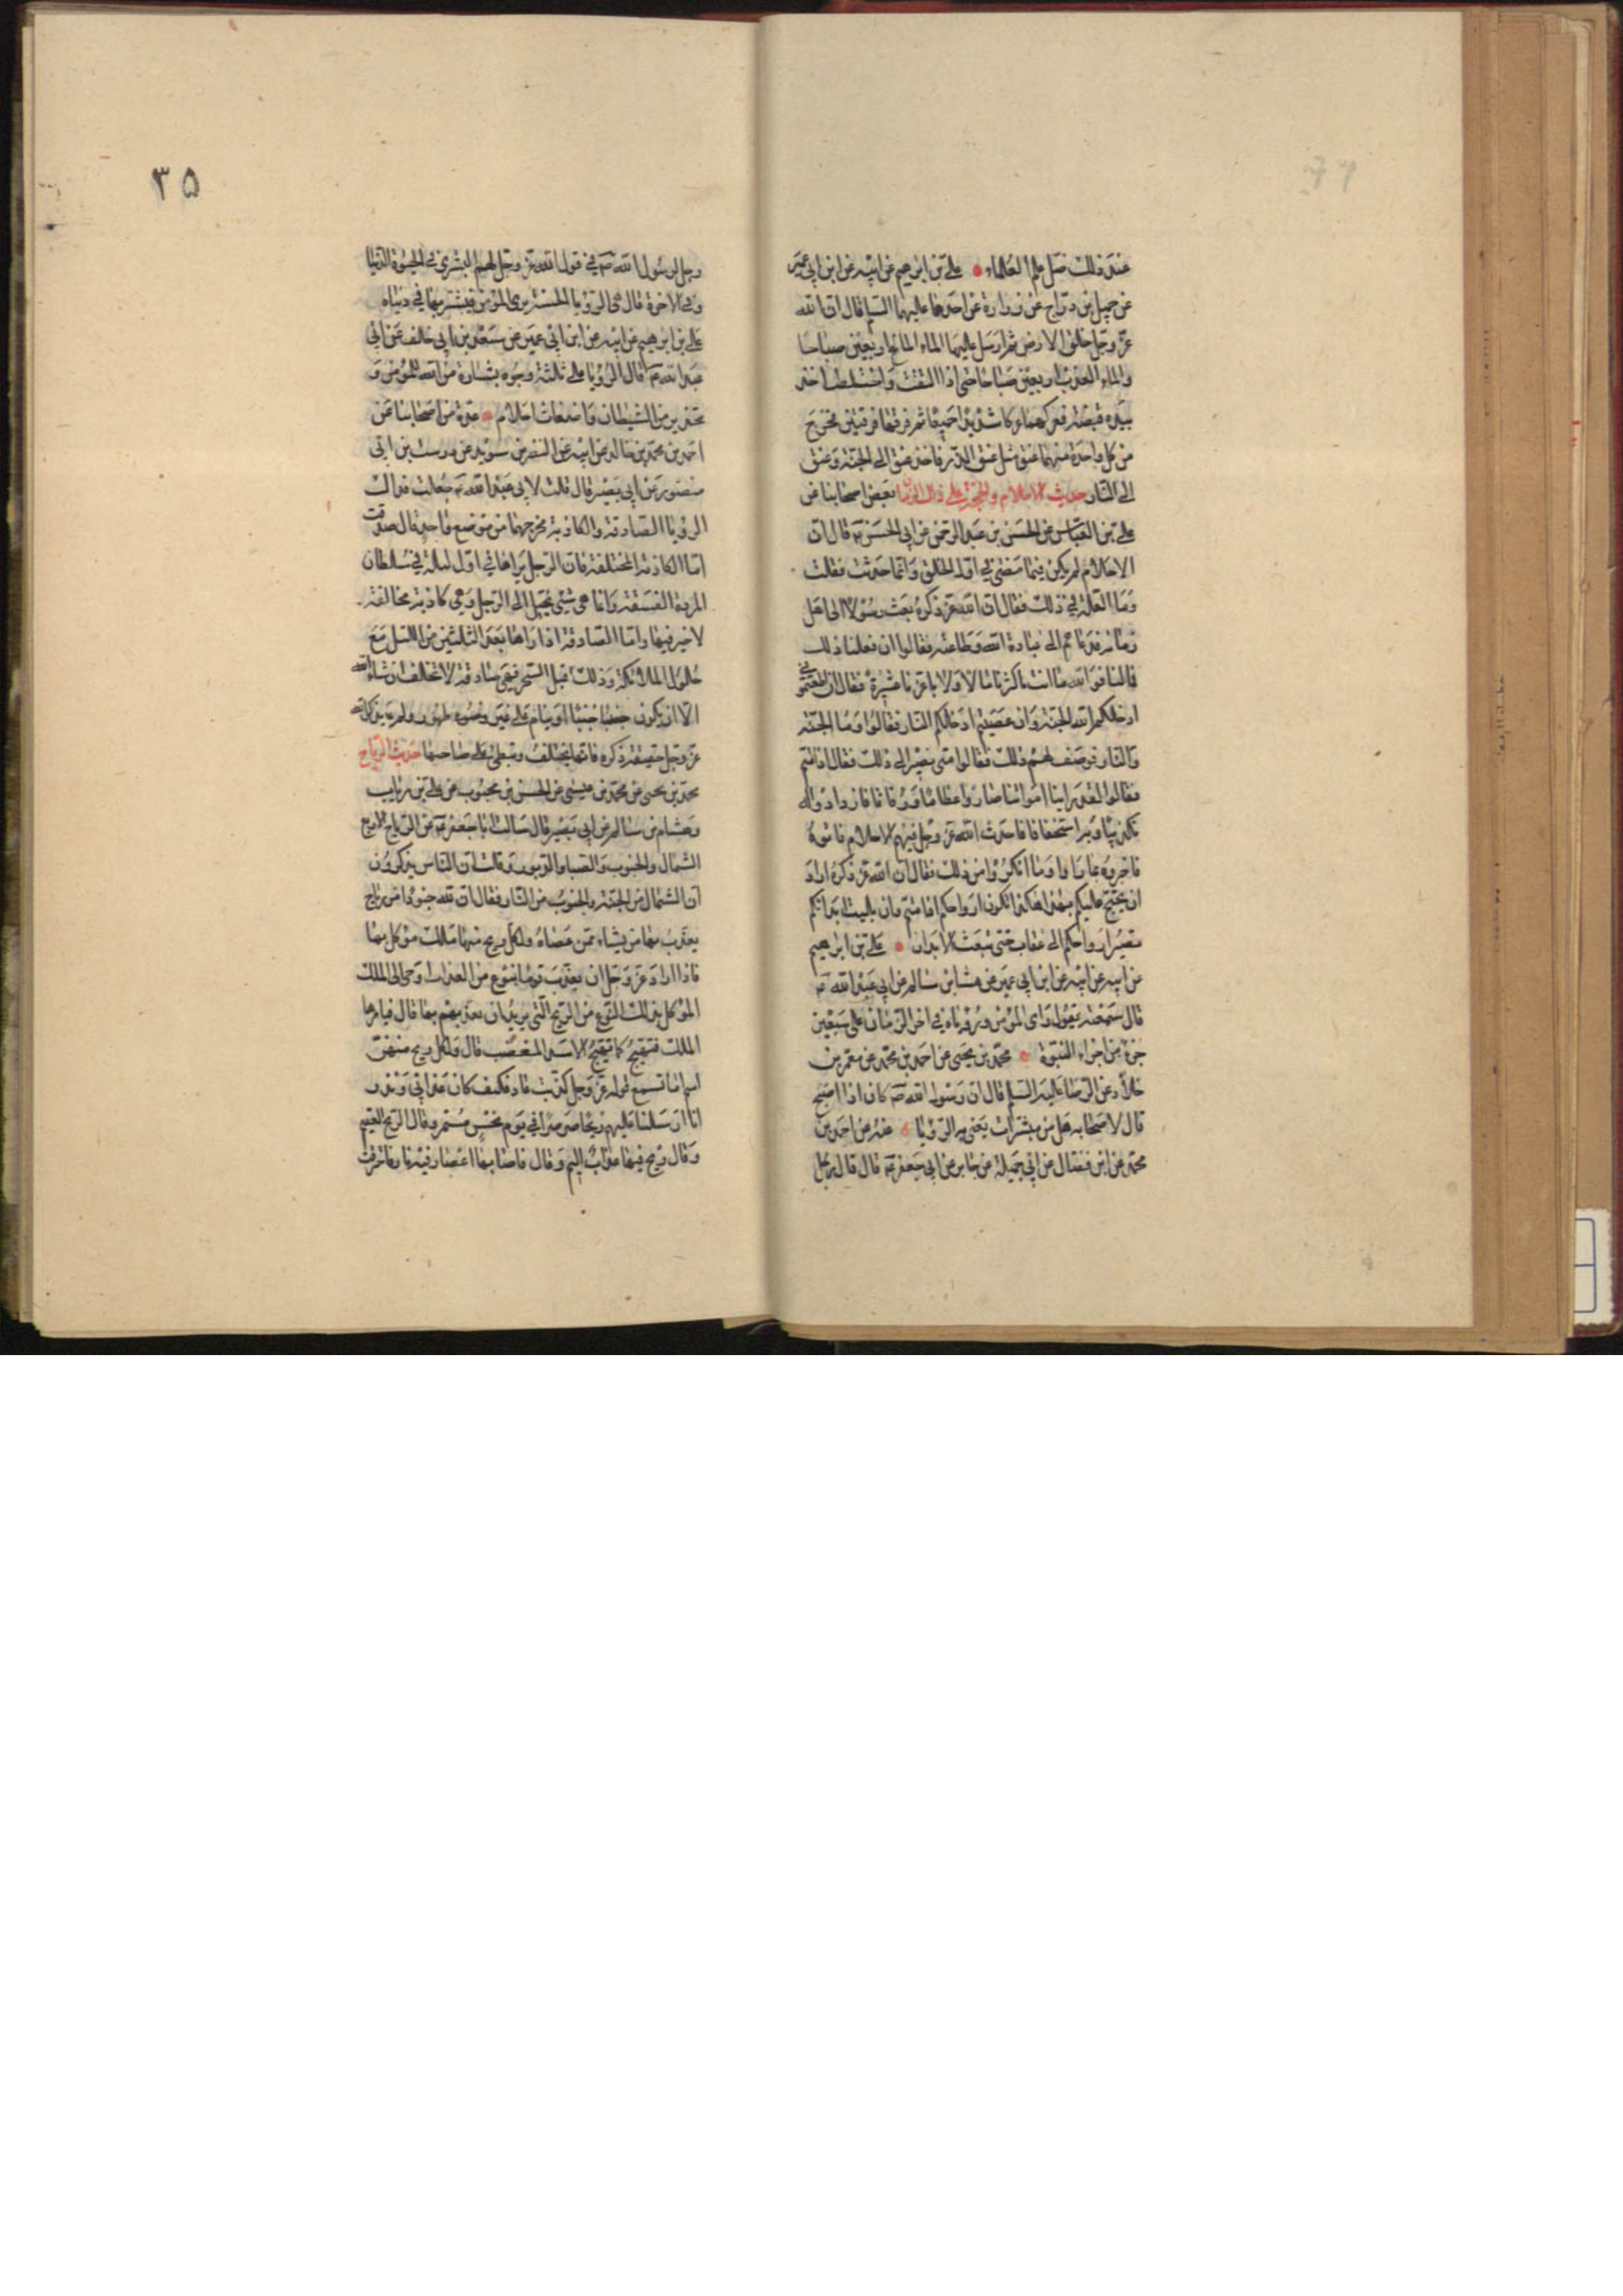 عند ذلك ضل علم العلماء • علي بن ابرهيم عن ابيه عن ابن ابي عمير
عن جميل بن دراج عن زرارة عن احدهما عليهما السلم قال ان الله
عز وجل خلق الارض ثم ارسل عليها الماء المالح اربعين صباحا
والماء العذب اربعين صباحا حتى اذا التقت واختلطت اخذ
بيده قبضة فعركها عركا شديدا جميعا ثم فرقها فرقتين فخرج
من كل واحدة منهما عنق مثل عنق الذر فاخذ عنق الى الجنة وعنق
الى النار حديث الاحلام والحجة على ذلك الزمان بعض اصحابنا عن
علي بن العباس عن الحسن بن عبد الرحمن عن ابي الحسن ع قال ان
الاحلام لم يكن فيما مضى في اول الخلق وانما حدثت فقلت
وما العلة في ذلك فقال ان الله عز ذكره بعث رسولا الى اهل
زمانه فدعاهم الى عبادة الله وطاعته فقالوا ان فعلنا ذلك
فمالنا فوالله ما انت باكثرنا مالا ولا باعزنا عشيرة فقال ان اطعتموني
ادخلكم الله الجنة وان عصيتم ادخلكم النار فقالوا وما الجنة
والنار فوصف لهم ذلك فقالوا متى نصير الى ذلك فقال اذا متم
فقالوا لقد راينا امواتنا صاروا عظاما ورفاتا فازدادوا له
تكذيبا وبه استخفافا فاحدث الله عز وجل فيهم الاحلام فاتوه
فاخبروه بما راوا وما انكروا من ذلك فقال ان الله عز ذكره اراد
ان يحتج عليكم بهذا هكذا تكون ارواحكم اذا متم وان بليت ابدانكم
تصير ارواحكم الى عقاب حتى تبعث الابدان • علي بن ابرهيم
عن ابيه عن ابيه عن ابن ابي عمير عن هشام بن سالم عن ابي عبد الله ع
قال سمعته يقول راى المؤمن ورؤياه في اخر الزمان على سبعين
جزءا من اجزاء النبوة • محمد بن يحيى عن احمد بن محمد عن معمر بن
خلاد عن الرضا عليه السلم قال ان رسول الله ص كان اذا اصبح
قال لاصحابه هل من مبشرات يعني به الرؤيا • عنه عن احمد بن
محمد عن ابن فضال عن ابي جميلة عن جابر عن ابي جعفر ع قال قال رجل
٣٥
رجل لرسول الله ص في قول الله عز وجل لهم البشرى في الحيوة الدنيا
وفي الاخرة قال هي الرؤيا الحسنة يرى المؤمن فيبشر بها في دنياه
علي بن ابرهيم عن ابيه عن ابن ابي عمير عن سعد بن ابي خالف عن ابي
عبد الله ع قال الرؤيا على ثلثة وجوه بشارة من الله للمؤمن و
تحذير من الشيطان واضغاث احلام • عدة من اصحابنا عن
احمد بن محمد بن خالد عن ابيه عن النضر بن سويد عن درست بن ابي
منصور عن ابي بصير قال قلت لابي عبد الله ع جعلت فداك
الرؤيا الصادقة والكاذبة مخرجهما من موضع واحد قال صدقت
اما الكاذبة المختلفة فان الرجل يراها في اول ليلة في سلطان
المردة الفسقة وانما هي شئ يخيل الى الرجل وهي كاذبة مخالفة
لا خير فيها واما الصادقة اذا راها بعد الثلثين من الليل مع
حلول الملائكة وذلك قبل السحر فهي صادقة لا تخالف ان شاء الله
الا ان يكون جنبا او ينام على غير وضوء طهور ولم يذكر الله
عز وجل حقيقة ذكره فانها تختلف وتبطئ على صاحبها حديث الرياح
محمد بن يحيى عن محمد بن عيسى عن الحسن بن محبوب عن علي بن رئاب
وهشام بن سالم عن ابي بصير قال سالت ابا جعفر ع عن الرياح الاربع
الشمال والجنوب والصبا والدبور وقلت ان الناس يذكرون
ان الشمال من الجنة والجنوب من النار فقال ان لله جنودا من رياح
يعذب بها من يشاء ممن عصاه ولكل ريح منها ملك موكل بها
فاذا اراد عز وجل ان يعذب قوما بنوع من العذاب اوحى الى الملك
الموكل بذلك النوع من الريح التي يريد ان يعذبهم بها قال فيامرها
الملك فتهيج كما يهيج الاسد المغضب قال ولكل ريح منهن
اسم اما تسمع قوله عز وجل كذبت عاد فكيف كان عذابي ونذر
انا ارسلنا عليهم ريحا صرصرا في يوم نحس مستمر وقال الريح العقيم
وقال ريح فيها عذاب اليم وقال فاصابها اعصار فيه نار فاحترقت